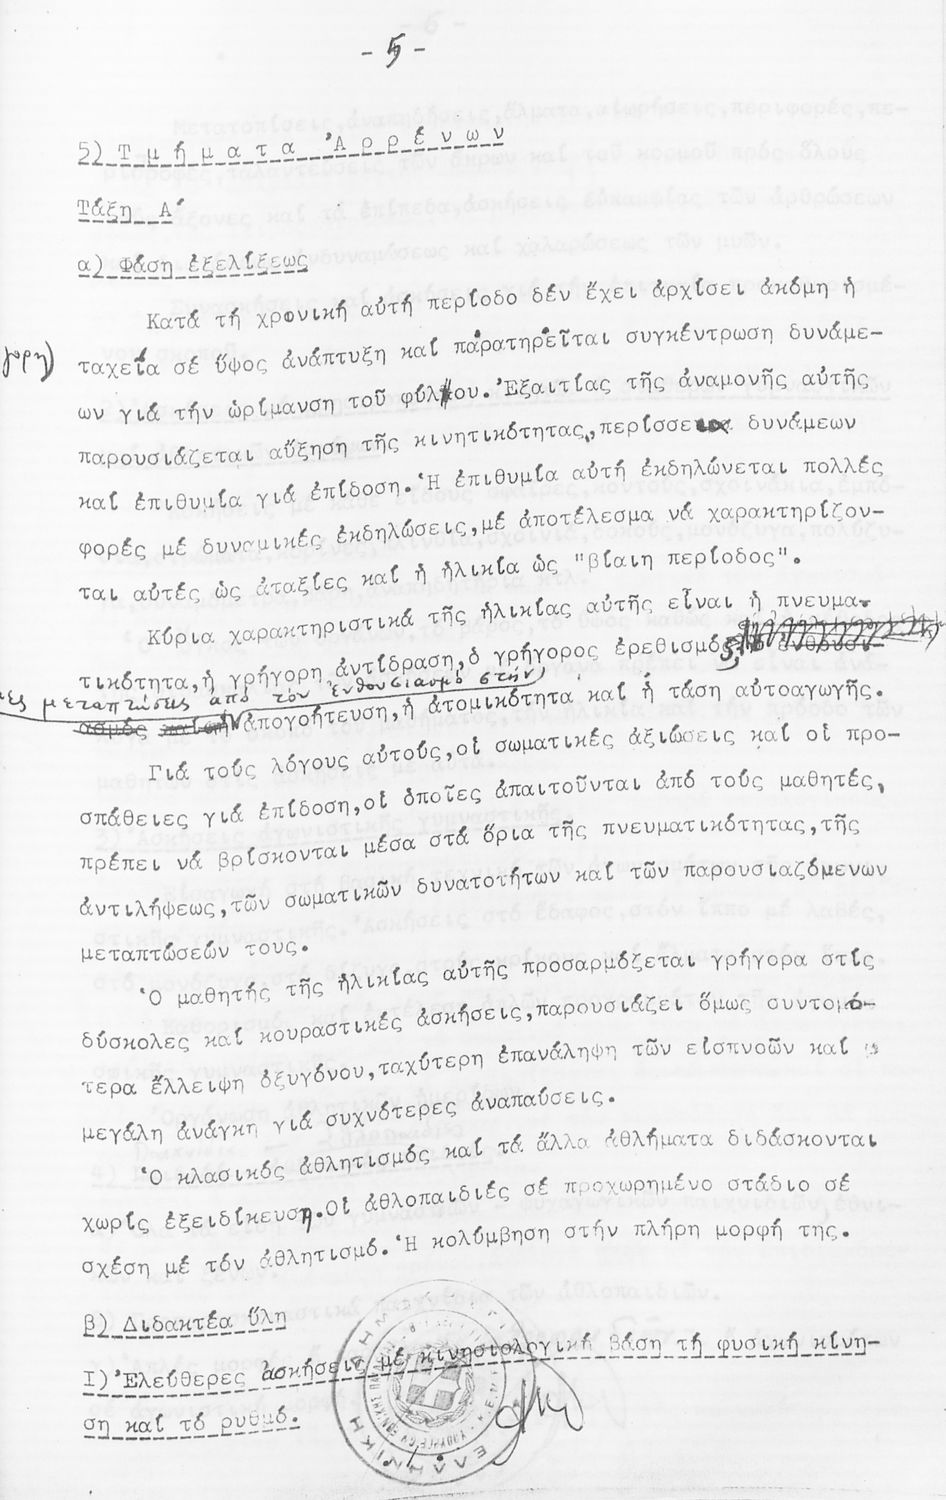 - 5 -
5) Τ μ ή μ α τ α Ἀ ρ ρ έ ν ω ν
Τάξη Α΄
α) Φάση ἐξελίξεως
Κατά τή χρονική αὐτή περίοδο δέν ἔχει ἀρχίσει ἀκόμη ἡ
ταχεία σέ ὕψος ἀνάπτυξη καί παρατηρεῖται συγκέντρωση δυνάμε-
ων γιά τήν ὡρίμανση τοῦ φύλου. Ἐξαιτίας τῆς ἀναμονῆς αὐτῆς
παρουσιάζεται αὔξηση τῆς κινητικότητας, δυνάμεων
καί ἐπιθυμία γιά ἐπίδοση. Ἡ ἐπιθυμία αὐτή ἐκδηλώνεται πολλές
φορές μέ δυναμικές ἐκδηλώσεις, μέ ἀποτέλεσμα νά χαρακτηρίζον-
ται αὐτές ὡς ἀταξίες καί ἡ ἡλικία ὡς "βίαιη περίοδος".
Κύρια χαρακτηριστικά τῆς ἡλικίας αὐτῆς εἶναι ἡ πνευμα-
τικότητα, ἡ γρήγορη ἀντίδραση, ὁ γρήγορος ἐρεθισμός, ἐνθουσι-
μεταπτώσεις ἀπό τόν ἐνθουσιασμό στήν
ασμός ἀπογοήτευση, ἡ ἀτομικότητα καί ἡ τάση αὐτοαγωγῆς.
Γιά τούς λόγους αὐτούς, οἱ σωματικές ἀξιώσεις καί οἱ προ-
σπάθειες γιά ἐπίδοση, οἱ ὁποῖες ἀπαιτοῦνται ἀπό τούς μαθητές,
πρέπει νά βρίσκονται μέσα στά ὅρια τῆς πνευματικότητας, τῆς
ἀντιλήψεως, τῶν σωματικῶν δυνατοτήτων καί τῶν παρουσιαζόμενων
μεταπτώσεών τους.
Ὁ μαθητής τῆς ἡλικίας αὐτῆς προσαρμόζεται γρήγορα στίς
δύσκολες καί κουραστικές ἀσκήσεις, παρουσιάζει ὅμως συντομό-
τερα ἔλλειψη ὀξυγόνου, ταχύτερη ἐπανάληψη τῶν εἰσπνοῶν καί
μεγάλη ἀνάγκη γιά συχνότερες ἀναπαύσεις.
Ὁ κλασικός ἀθλητισμός καί τά ἄλλα ἀθλήματα διδάσκονται
χωρίς ἐξειδίκευση. Οἱ ἀθλοπαιδιές σέ προχωρημένο στάδιο σέ
σχέση μέ τόν ἀθλητισμό. Ἡ κολύμβηση στήν πλήρη μορφή της.
β) Διδακτέα ὕλη
Ι) Ἐλεύθερες ἀσκήσεις μέ κινησιολογική βάση τή φυσική κίνη-
ση καί τό ρυθμό.